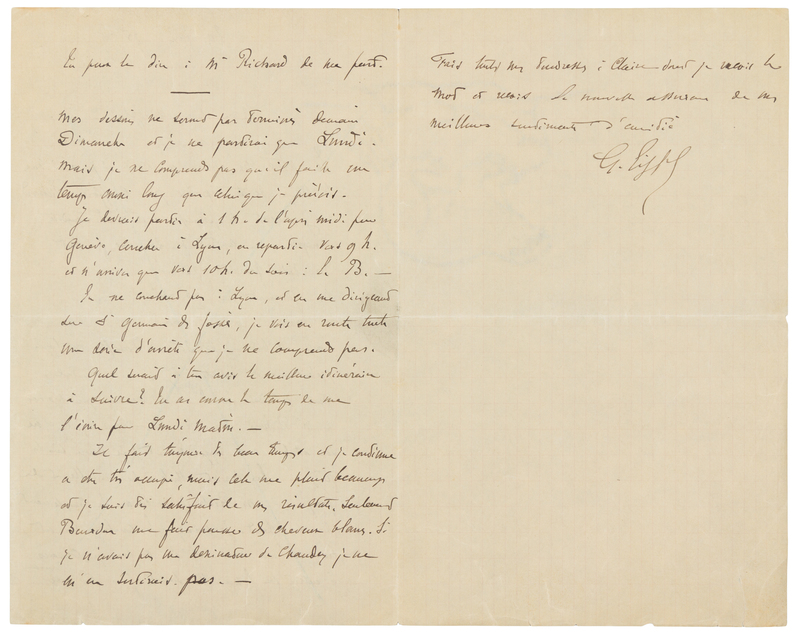 Tu peux le dire à Mr Richard de ma part.
Mes dessins ne seront pas terminés demain
Dimanche et je ne partirai que Lundi.
Mais je ne comprends pas qu'il faille un
temps aussi long que celui que je prévois.
Je devrais partir à 1 h. de l'après midi pour
Genève, coucher à Lyon, en repartir vers 9 h.
et n'arriver que vers 10 h. du soir à la B. —
En ne couchant pas à Lyon, et en me dirigeant
sur St Germain des fossés, je vois en route toute
une série d'arrêts que je ne comprends pas.
Quel serait à ton avis le meilleur itinéraire
à suivre? Tu as encore le temps de me
l'écrire pour Lundi matin. —
Il fait toujours très beau temps et je continue
à être très occupé, mais cela me plait beaucoup
et je suis très satisfait de mes résultats. Seulement
me fait pousser des cheveux blancs. Si
je n'avais pas un dessinateur de je ne
m'en sortirais pas. —
Fais toutes mes tendresses à Claire dont je reçois le
mot et reçois la nouvelle assurance de mes
meilleurs sentiments d'amitié
G. Eiffel